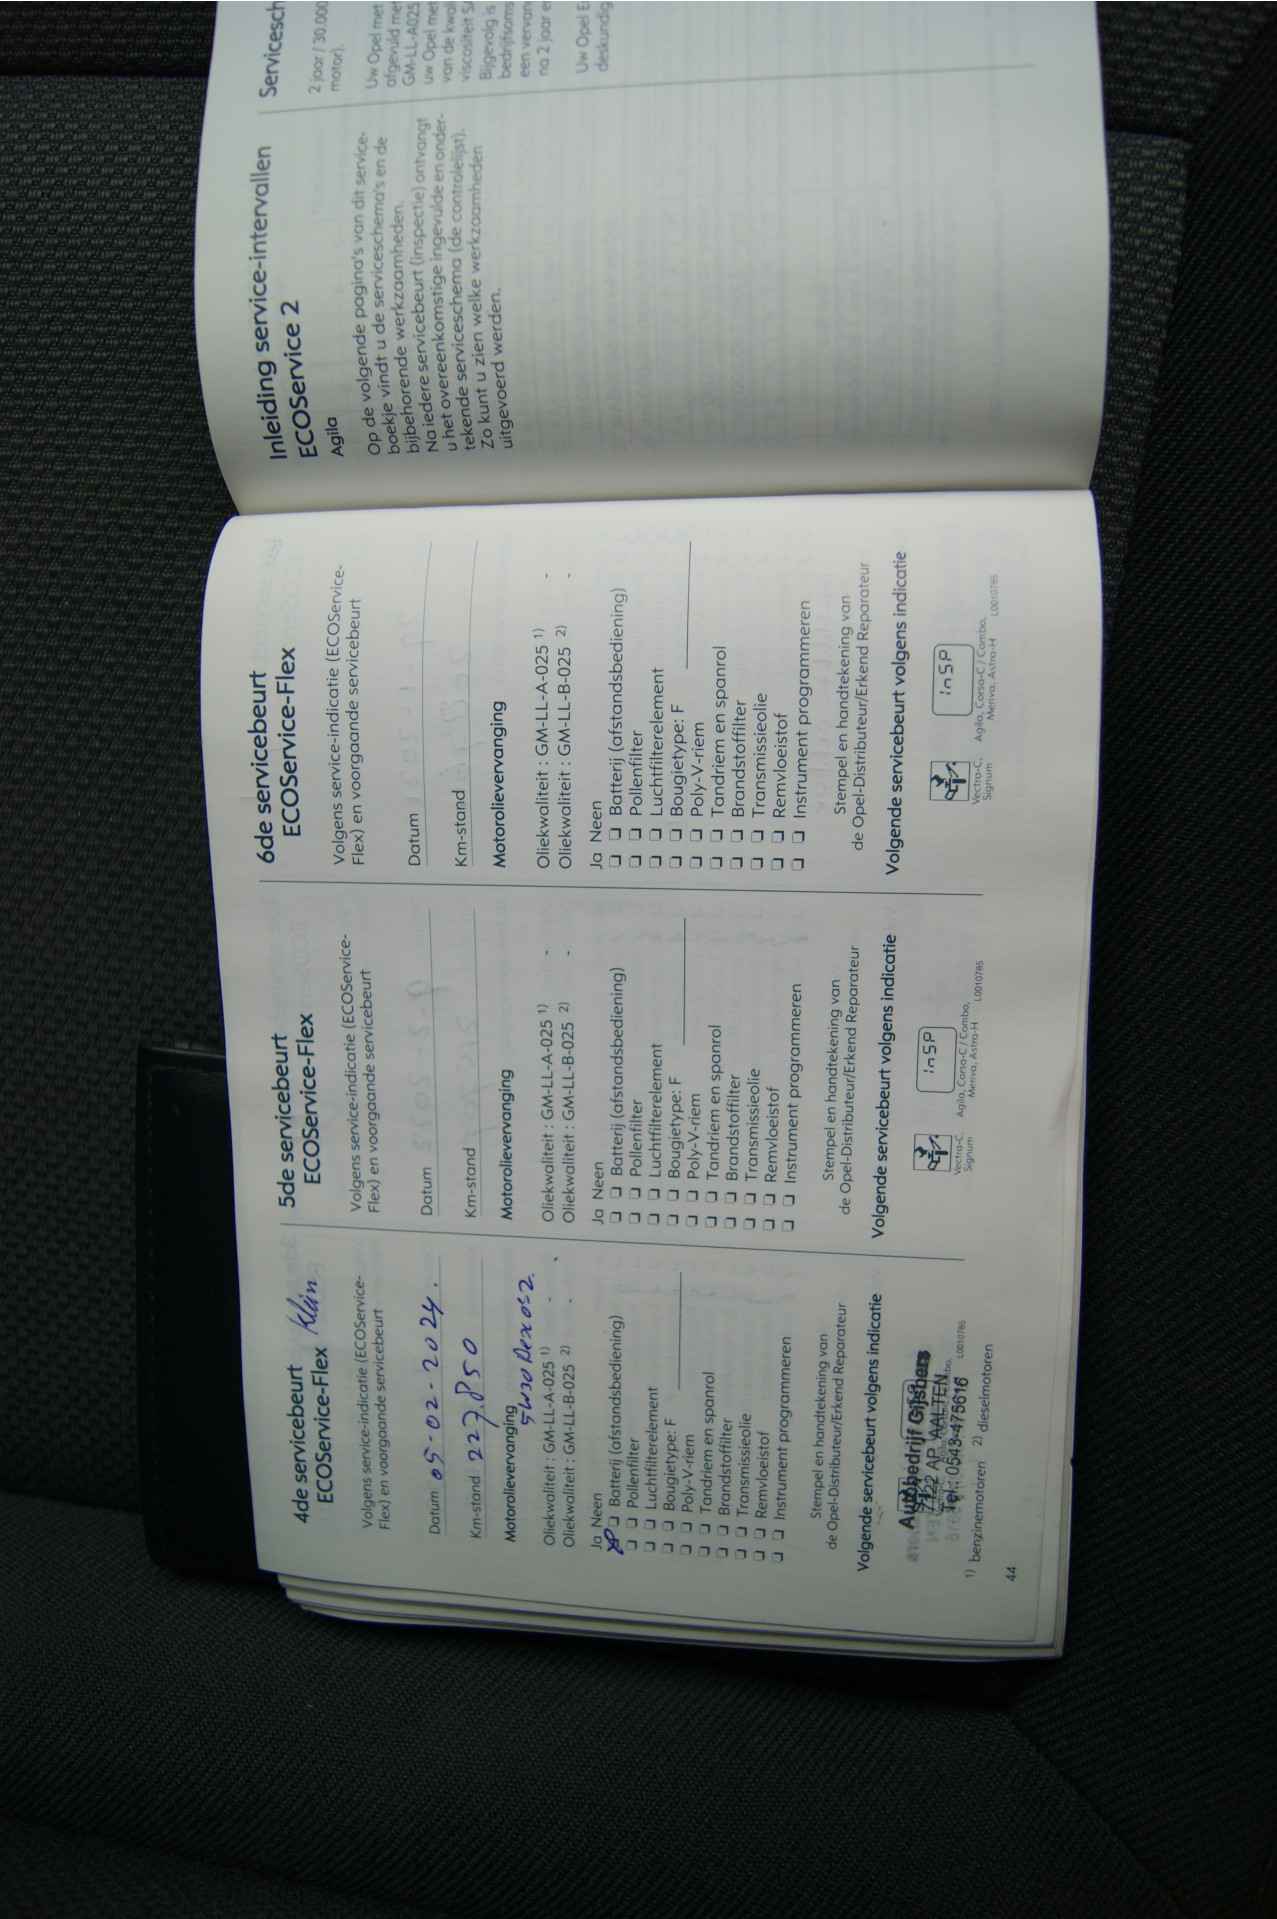 4de servicebeurt
ECOService-Flex Klein
Volgens service-indicatie (ECOService-
Flex) en voorgaande servicebeurt
Datum 05-02-2024.
Km-stand 227.850
Motorolievervanging
5W30 Dexos2.
Oliekwaliteit : GM-LL-A-025 1) -
Oliekwaliteit : GM-LL-B-025 2) -
Ja Neen
Batterij (afstandsbediening)
Pollenfilter
Luchtfilterelement
Bougietype: F
Poly-V-riem
Tandriem en spanrol
Brandstoffilter
Transmissieolie
Remvloeistof
Instrument programmeren
Stempel en handtekening van
de Opel-Distributeur/Erkend Reparateur
Volgende servicebeurt volgens indicatie
Autobedrijf Gijsbers
7122 AP AALTEN
Tel.: 0543-475616
L0010785
1) benzinemotoren 2) dieselmotoren
44
5de servicebeurt
ECOService-Flex
Volgens service-indicatie (ECOService-
Flex) en voorgaande servicebeurt
Datum
Km-stand
Motorolievervanging
Oliekwaliteit : GM-LL-A-025 1) -
Oliekwaliteit : GM-LL-B-025 2) -
Ja Neen
Batterij (afstandsbediening)
Pollenfilter
Luchtfilterelement
Bougietype: F
Poly-V-riem
Tandriem en spanrol
Brandstoffilter
Transmissieolie
Remvloeistof
Instrument programmeren
Stempel en handtekening van
de Opel-Distributeur/Erkend Reparateur
Volgende servicebeurt volgens indicatie
InSP
Vectra-C, Agila, Corsa-C / Combo,
Signum Meriva, Astra-H L0010785
6de servicebeurt
ECOService-Flex
Volgens service-indicatie (ECOService-
Flex) en voorgaande servicebeurt
Datum
Km-stand
Motorolievervanging
Oliekwaliteit : GM-LL-A-025 1) -
Oliekwaliteit : GM-LL-B-025 2) -
Ja Neen
Batterij (afstandsbediening)
Pollenfilter
Luchtfilterelement
Bougietype: F
Poly-V-riem
Tandriem en spanrol
Brandstoffilter
Transmissieolie
Remvloeistof
Instrument programmeren
Stempel en handtekening van
de Opel-Distributeur/Erkend Reparateur
Volgende servicebeurt volgens indicatie
InSP
Vectra-C, Agila, Corsa-C / Combo,
Signum Meriva, Astra-H L0010785
Inleiding service-intervallen
ECOService 2
Agila
Op de volgende pagina's van dit service-
boekje vindt u de serviceschema's en de
bijbehorende werkzaamheden.
Na iedere servicebeurt (inspectie) ontvangt
u het overeenkomstige ingevulde en onder-
tekende serviceschema (de controlelijst).
Zo kunt u zien welke werkzaamheden
uitgevoerd werden.
Servicesch
2 jaar / 30.000
motor).
Uw Opel met
afgevuld met
GM-LL-A025
uw Opel met
van de kwal
viscositeit SA
Bijgevolg is
bedrijfsoms
een vervan
na 2 jaar e
Uw Opel E
deskundig